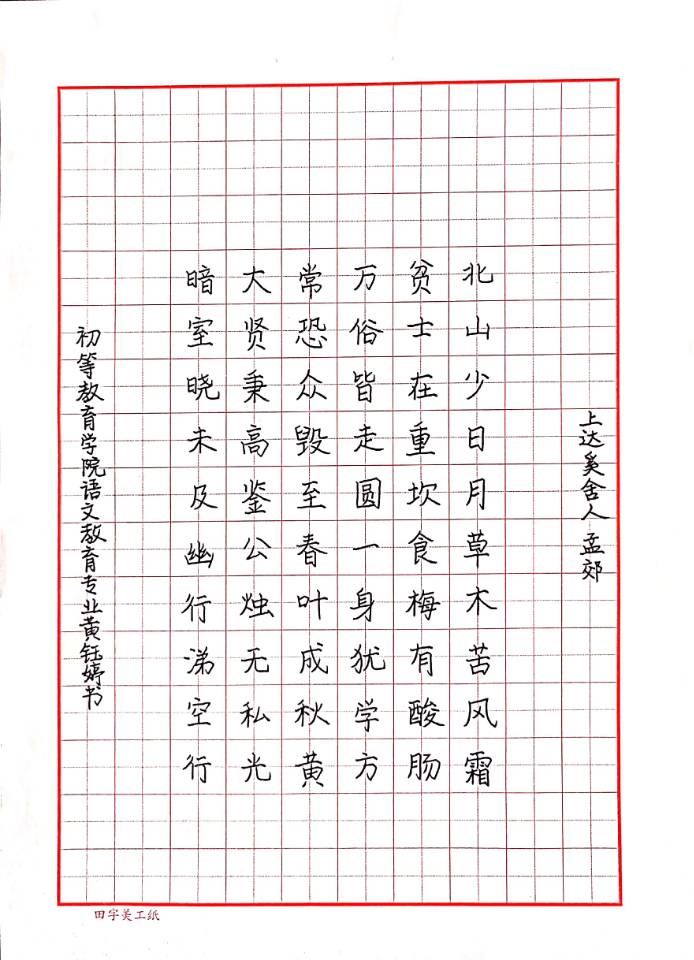 上达奚舍人 孟郊
北山少日月草木苦风霜
贫士在重坎食梅有酸肠
万俗皆走圆一身犹学方
常恐众毁至春叶成秋黄
大贤秉高鉴公烛无私光
暗室晓未及幽行涕空行
初等教育学院语文教育专业黄钰婷书
田字美工纸